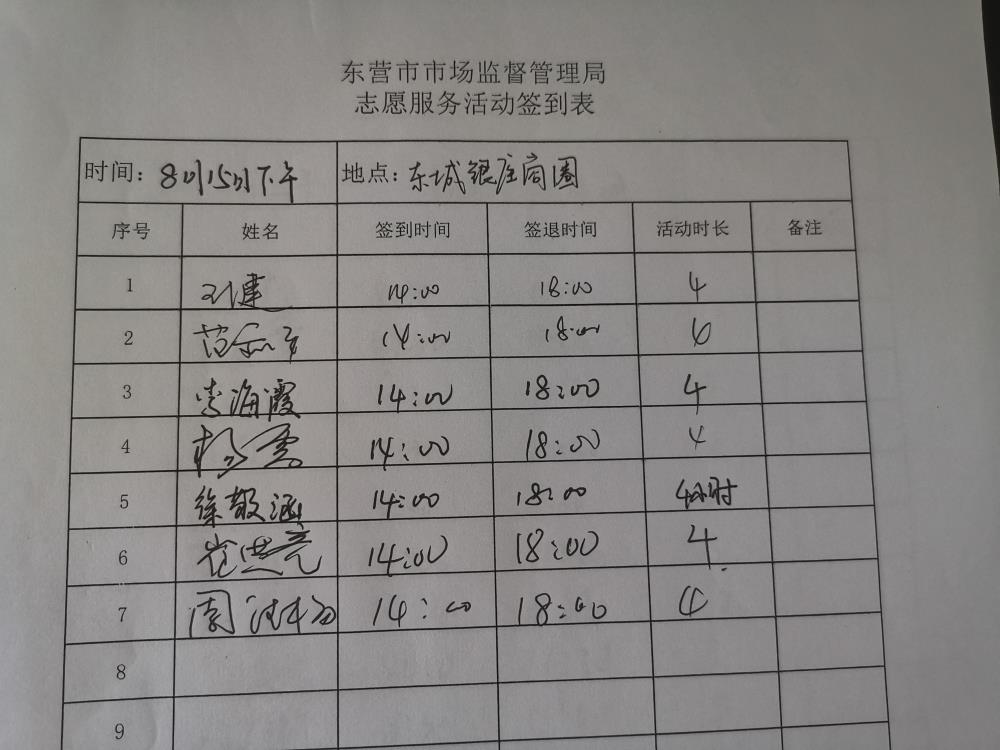 东营市市场监督管理局
志愿服务活动签到表
时间：8月15日下午 地点：东城银座商圈
序号 姓名 签到时间 签退时间 活动时长 备注
1 刘建 14:00 18:00 4
2 14:00 18:00 4
3 李海霞 14:00 18:00 4
4 杨雪 14:00 18:00 4
5 徐敬涵 14:00 18:00 4小时
6 崔洪亮 14:00 18:00 4
7 周 14:00 18:00 4
8
9